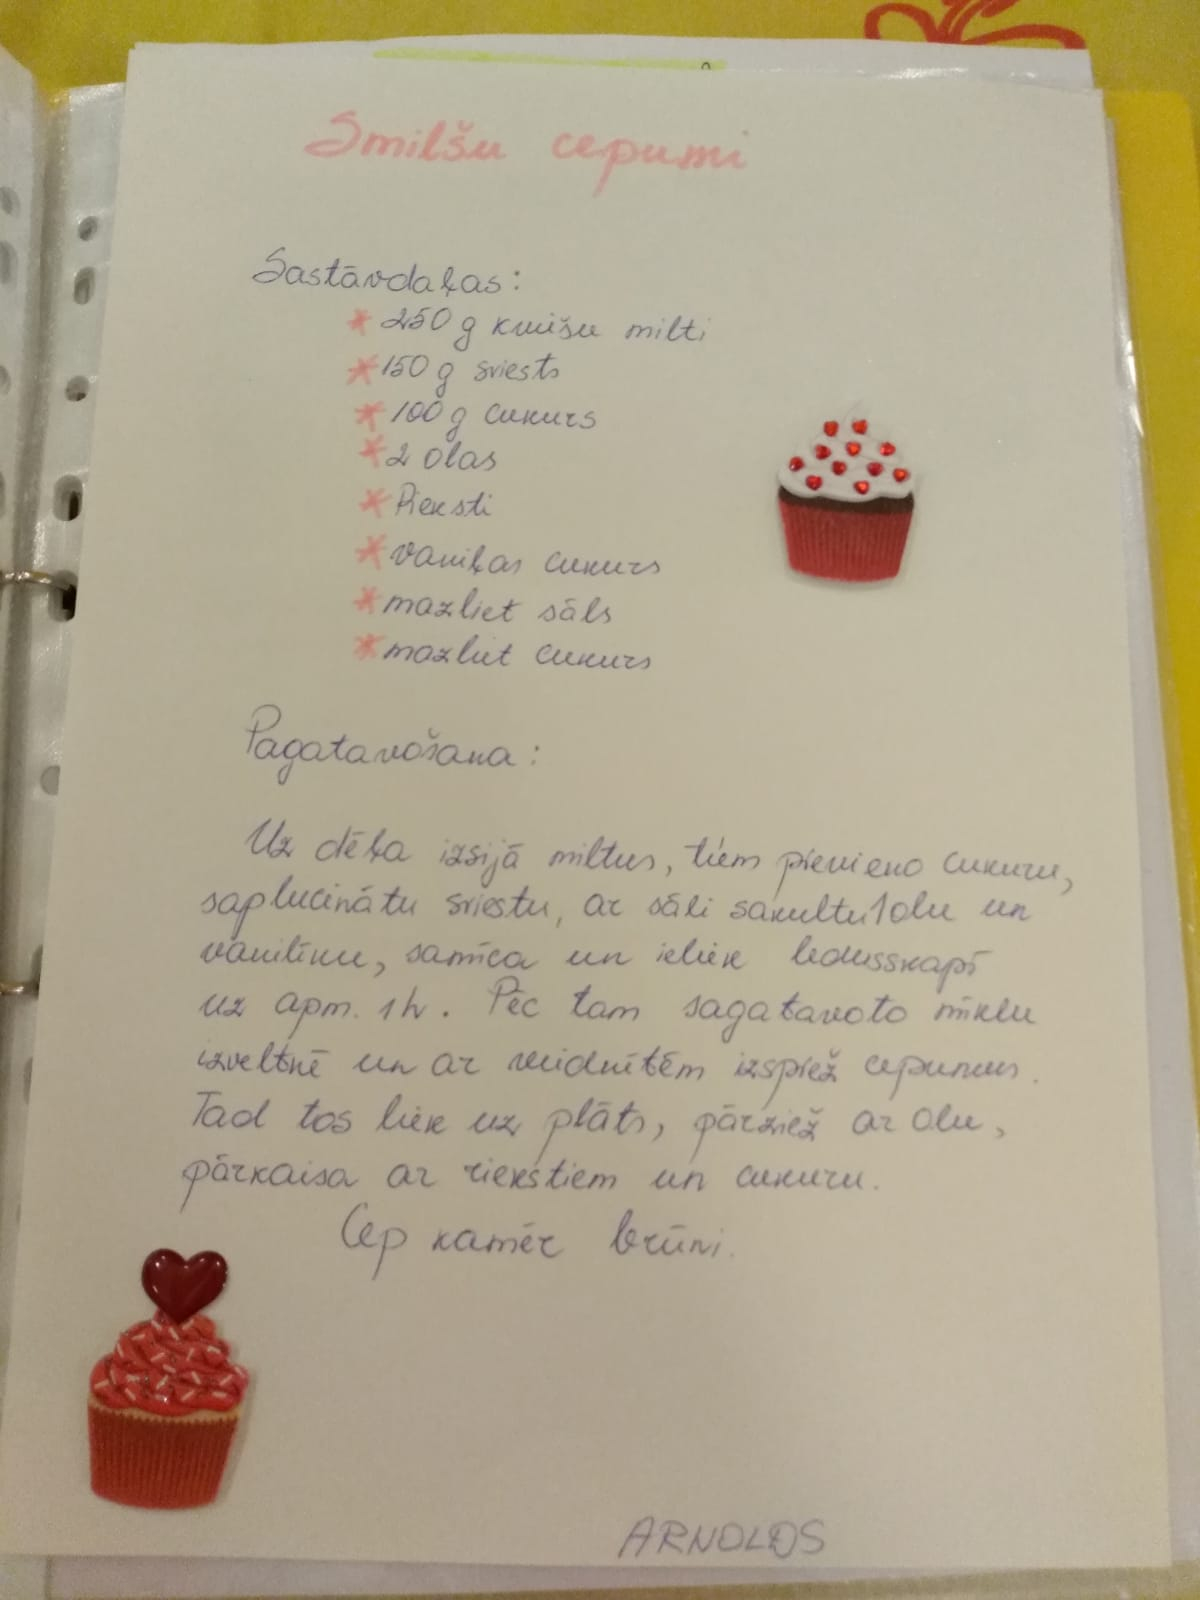 Smilšu cepumi
Sastāvdaļas:
* 250 g kviešu milti
* 150 g sviests
* 100 g cukurs
* 2 olas
* Rieksti
* vaniļas cukurs
* mazliet sāls
* mazliet cukurs
Pagatavošana:
Uz dēļa izsijā miltus, tiem pievieno cukuru,
saplucinātu sviestu, ar sāli sakultu 1 olu un
vanilīnu, samīca un ieliek ledusskapī
uz apm. 1h. Pēc tam sagatavoto mīklu
izveltnē un ar veidnītēm izspiež cepumus.
Tad tos liek uz plāts, pārziež ar olu,
pārkaisa ar riekstiem un cukuru.
Cep kamēr brūni.
ARNOLDS